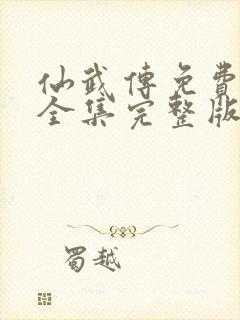 仙武傳免費
全集完整版
蜀越